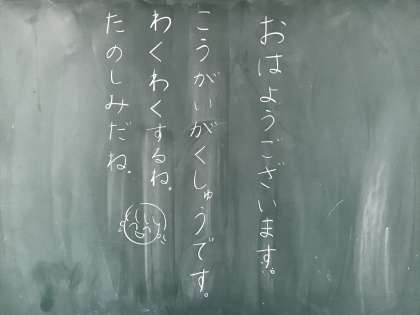 おはようございます。
こうがいがくしゅうです。
わくわくするね。
たのしみだね。